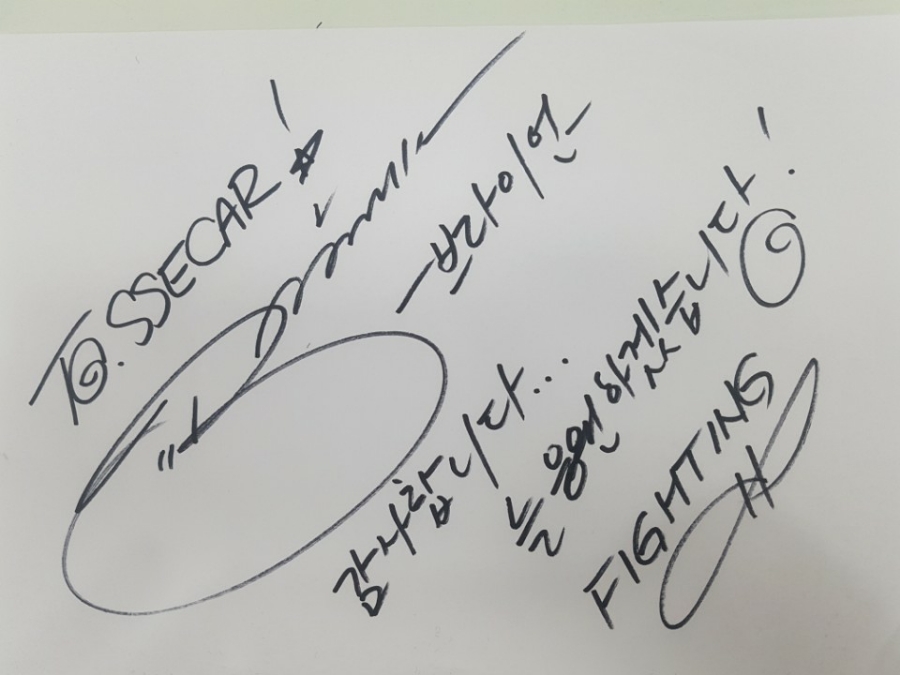 TO. SSECAR☆!
-브라이언
감사합니다...
늘 응원하겠습니다!
FIGHTING